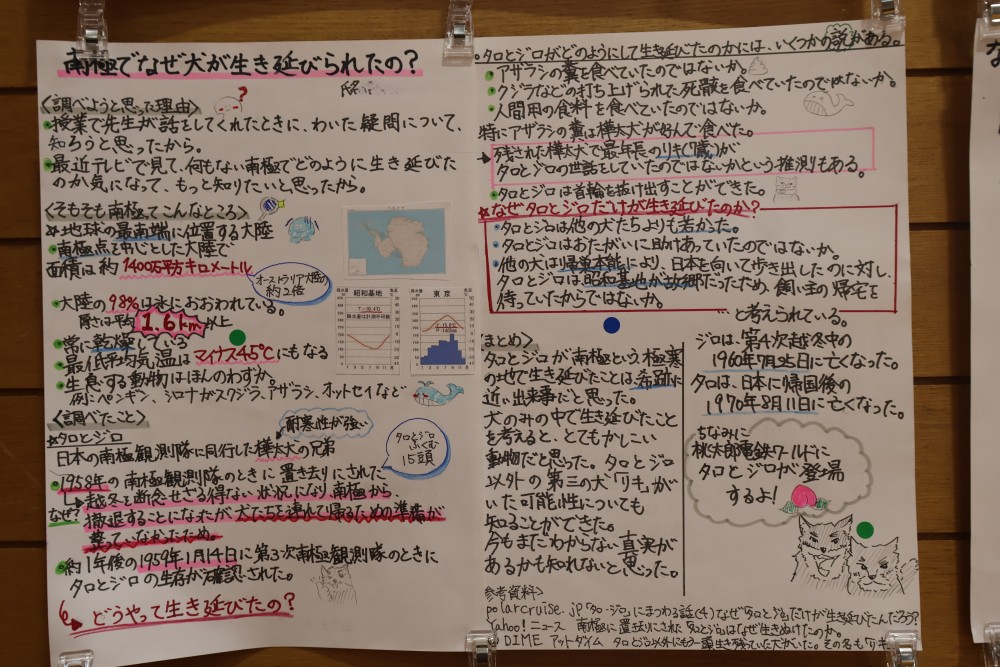 南極でなぜ犬が生き延びられたの?
氏名
<調べようと思った理由>
?
授業で先生が話をしてくれたときに、わいた疑問について、
知ろうと思ったから。
最近テレビで見て、何もない南極でどのように生き延びた
のか気になって、もっと知りたいと思ったから。
<そもそも南極ってこんなところ>
☆地球の最南端に位置する大陸
南極点を中心とした大陸で
面積は約1400万平方キロメートル
オーストラリア大陸の
約2倍
大陸の98%は氷におおわれている。
厚さは平均1.6km以上
常に乾燥している
最低平均気温はマイナス45℃にもなる
生息する動物はほんのわずか。
例にペンギン、シロナガスクジラ、アザラシ、オットセイなど
昭和基地
東京
<調べたこと>
耐寒性が強い
☆タロとジロ
日本の南極観測隊に同行した樺太犬の兄弟
タロとジロ
ふくむ
15頭
1958年の南極観測隊のときに置き去りにされた
なぜ?
越冬を断念せざる得ない状況になり、南極から
撤退することになったが犬たちを連れて帰るための準備が
整っていなかったため。
約1年後の1959年1月14日に第3次南極観測隊のときに
タロとジロの生存が確認された。
どうやって生き延びたの?
・タロとジロがどのようにして生き延びたのかには、いくつかの説がある。
アザラシの糞を食べていたのではないか。
クジラなどの打ち上げられた死骸を食べていたのでないか。
人間用の食料を食べていたのではないか。
特にアザラシの糞は樺太犬が好んで食べた。
残された樺太犬で最年長のリキ(7歳)が
タロとジロの世話をしていたのではないかという推測もある。
タロとジロは首輪を抜け出すことができた。
☆なぜタロとジロだけが生き延びたのか?
・タロとジロは他の犬たちよりも若かった。
・タロとジロはおたがいに助けあっていたのではないか。
・他の犬は帰巣本能により、日本を向いて歩き出したのに対し、
タロとジロは昭和基地が故郷だったため、飼い主の帰宅を
待っていたからではないか。
…と考えられている。
まとめ>
タロとジロが南極という極寒
の地で生き延びたことは、奇跡に
近い出来事だと思った。
犬のみの中で生き延びたこと
を考えると、とてもかしこい
動物だと思った。タロとジロ
以外の第三の犬「リキ」が
いた可能性についても
知ることができた。
今もまだわからない真実が
あるかも知れないと思った。
ジロは、第4次越冬中の
1960年7月25日に亡くなった。
タロは、日本に帰国後の
1970年8月11日に亡くなった。
ちなみに
桃太郎電鉄ワールドに
タロとジロが登場
するよ!
参考資料>
polarcruise.jp「タロ・ジロ」にまつわる話(4)なぜ「タロとジロ」だけが生き延びたんだろう?
Yahoo!ニュース 南極に置き去りにされたタロとジロはなぜ生きぬけたのか。
@DIME アットダイム タロとジロ以外にもう一頭生き残っていた犬がいた。その名も「リキ